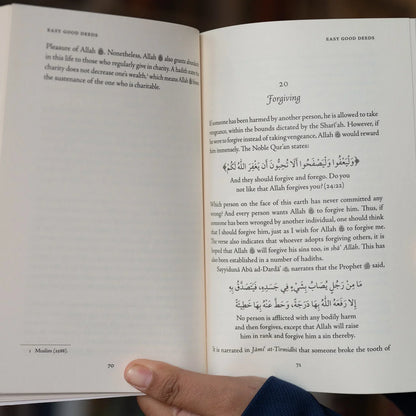 EASY GOOD DEEDS
Pleasure of Allah ﷻ. Nonetheless, Allah ﷻ also grants abundance
in this life to those who regularly give in charity. A hadith states
charity does not decrease one's wealth,¹ which means Allah ﷻ
the sustenance of the one who is charitable.
1 Muslim (2588).
70
EASY GOOD DEEDS
20
Forgiving
If someone has been harmed by another person, he is allowed to take
vengeance, within the bounds dictated by the Sharīʿah. However, if
he were to forgive instead of taking vengeance, Allah ﷻ would reward
him immensely. The Noble Qur'an states:
﴿وَلْيَعْفُوا وَلْيَصْفَحُوا أَلَا تُحِبُّونَ أَن يَغْفِرَ اللَّهُ لَكُمْ﴾
And they should forgive and forego. Do you
not like that Allah forgives you? (24:22)
Which person on the face of this earth has never committed any
wrong? And every person wants Allah ﷻ to forgive him. Thus, if
someone has been wronged by another individual, one should think
that I should forgive him, just as I wish for Allah ﷻ to forgive me.
The verse also indicates that whoever adopts forgiving others, it is
hoped that Allah ﷻ will forgive his sins too, in shāʾ Allāh. This has
also been established in a number of hadiths.
Sayyidunā Abū ad-Dardāʾ narrates that the Prophet ﷺ said,
مَا مِنْ رَجُلٍ يُصَابُ بِشَيْءٍ فِي جَسَدِهِ، فَيَتَصَدَّقُ بِهِ
إِلَّا رَفَعَهُ اللَّهُ بِهَا دَرَجَةً، وَحَطَّ عَنْهُ بِهَا خَطِيئَةً
No person is afflicted with any bodily harm
and then forgives, except that Allah will raise
him in rank and forgive him a sin thereby.
It is narrated in Jāmiʿ at-Tirmidhī that someone broke the tooth of
71